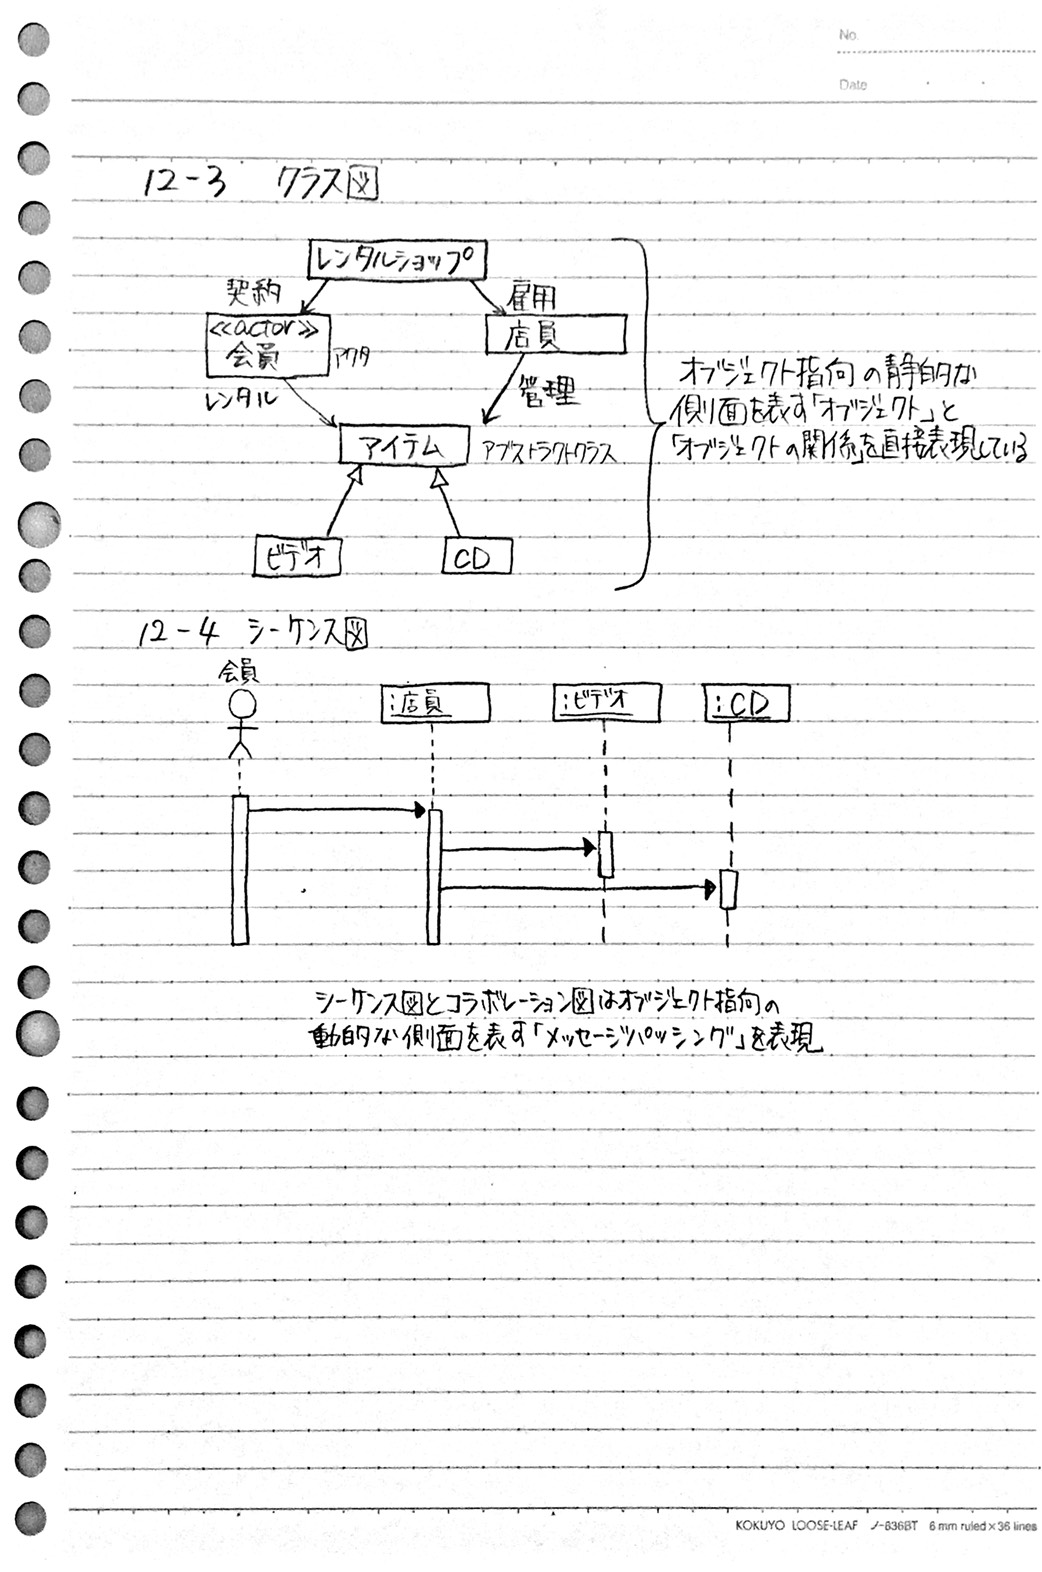 No.
Date
12-3 クラス図
レンタルショップ
契約
雇用
<<actor>>
会員
アクタ
店員
レンタル
管理
アイテム
アブストラクトクラス
ビデオ
CD
オブジェクト指向の静的な
側面を表す「オブジェクト」と
「オブジェクトの関係」を直接表現している
12-4 シーケンス図
会員
:店員
:ビデオ
:CD
シーケンス図とコラボレーション図はオブジェクト指向の
動的な側面を表す「メッセージパッシング」を表現
KOKUYO LOOSE-LEAF ノ-836BT 6 mm ruled×36 lines